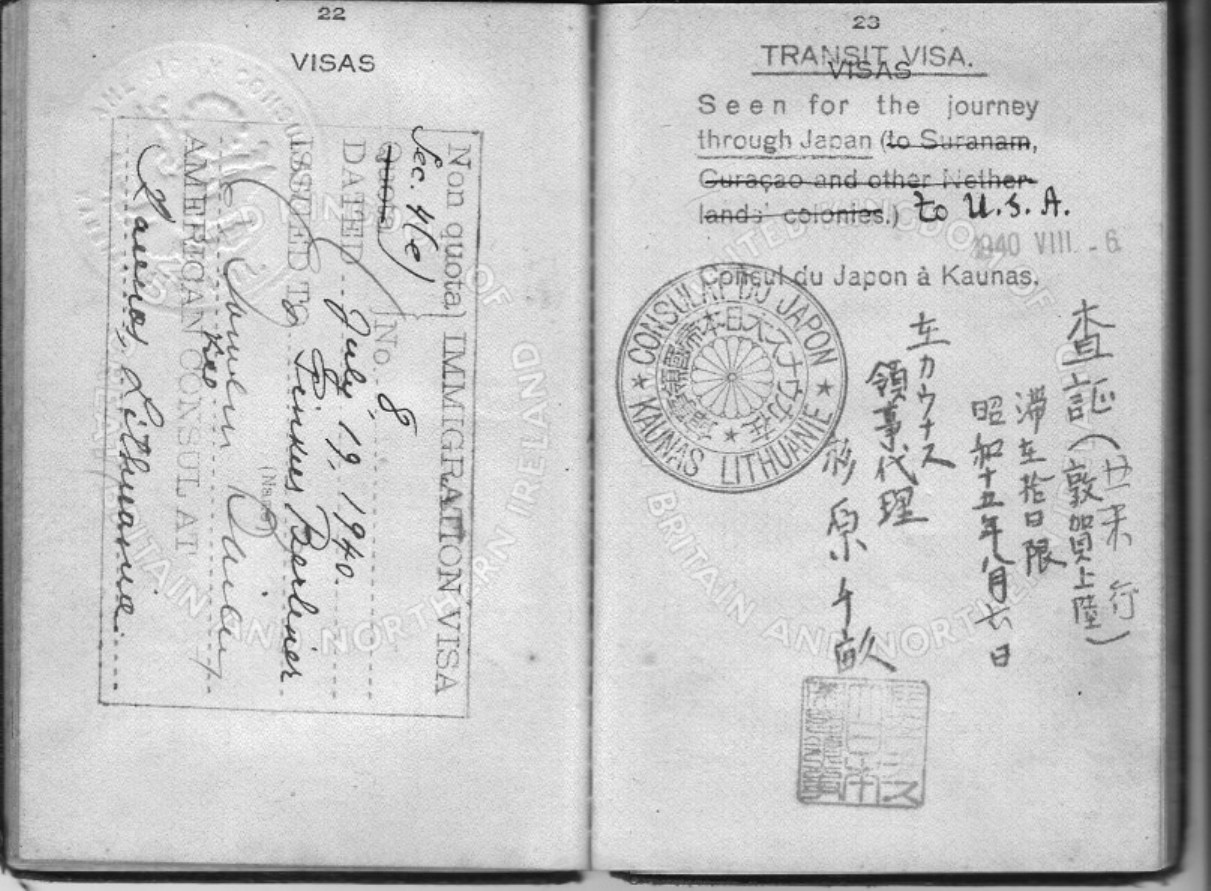 22
VISAS
Non quota} IMMIGRATION VISA
Quota
Sec. 4(e)
No. 8
DATED July 19, 1940
ISSUED TO Pinkus Berliner
(Name)
AMERICAN CONSUL AT
Kaunas, Lithuania.
23
TRANSIT VISA.
VISAS
Seen for the journey
through Japan (to Suranam,
Curaçao and other Nether-
lands' colonies.) to U.S.A.
1940 VIII -6
Consul du Japon à Kaunas.
CONSULAT DU JAPON
KAUNAS LITHUANIE
査証(敦賀上陸)
滞在拾日限
昭和十五年八月六日
在カウナス
領事代理
杉原千畝
UNITED KINGDOM OF
BRITAIN AND NORTHERN IRELAND